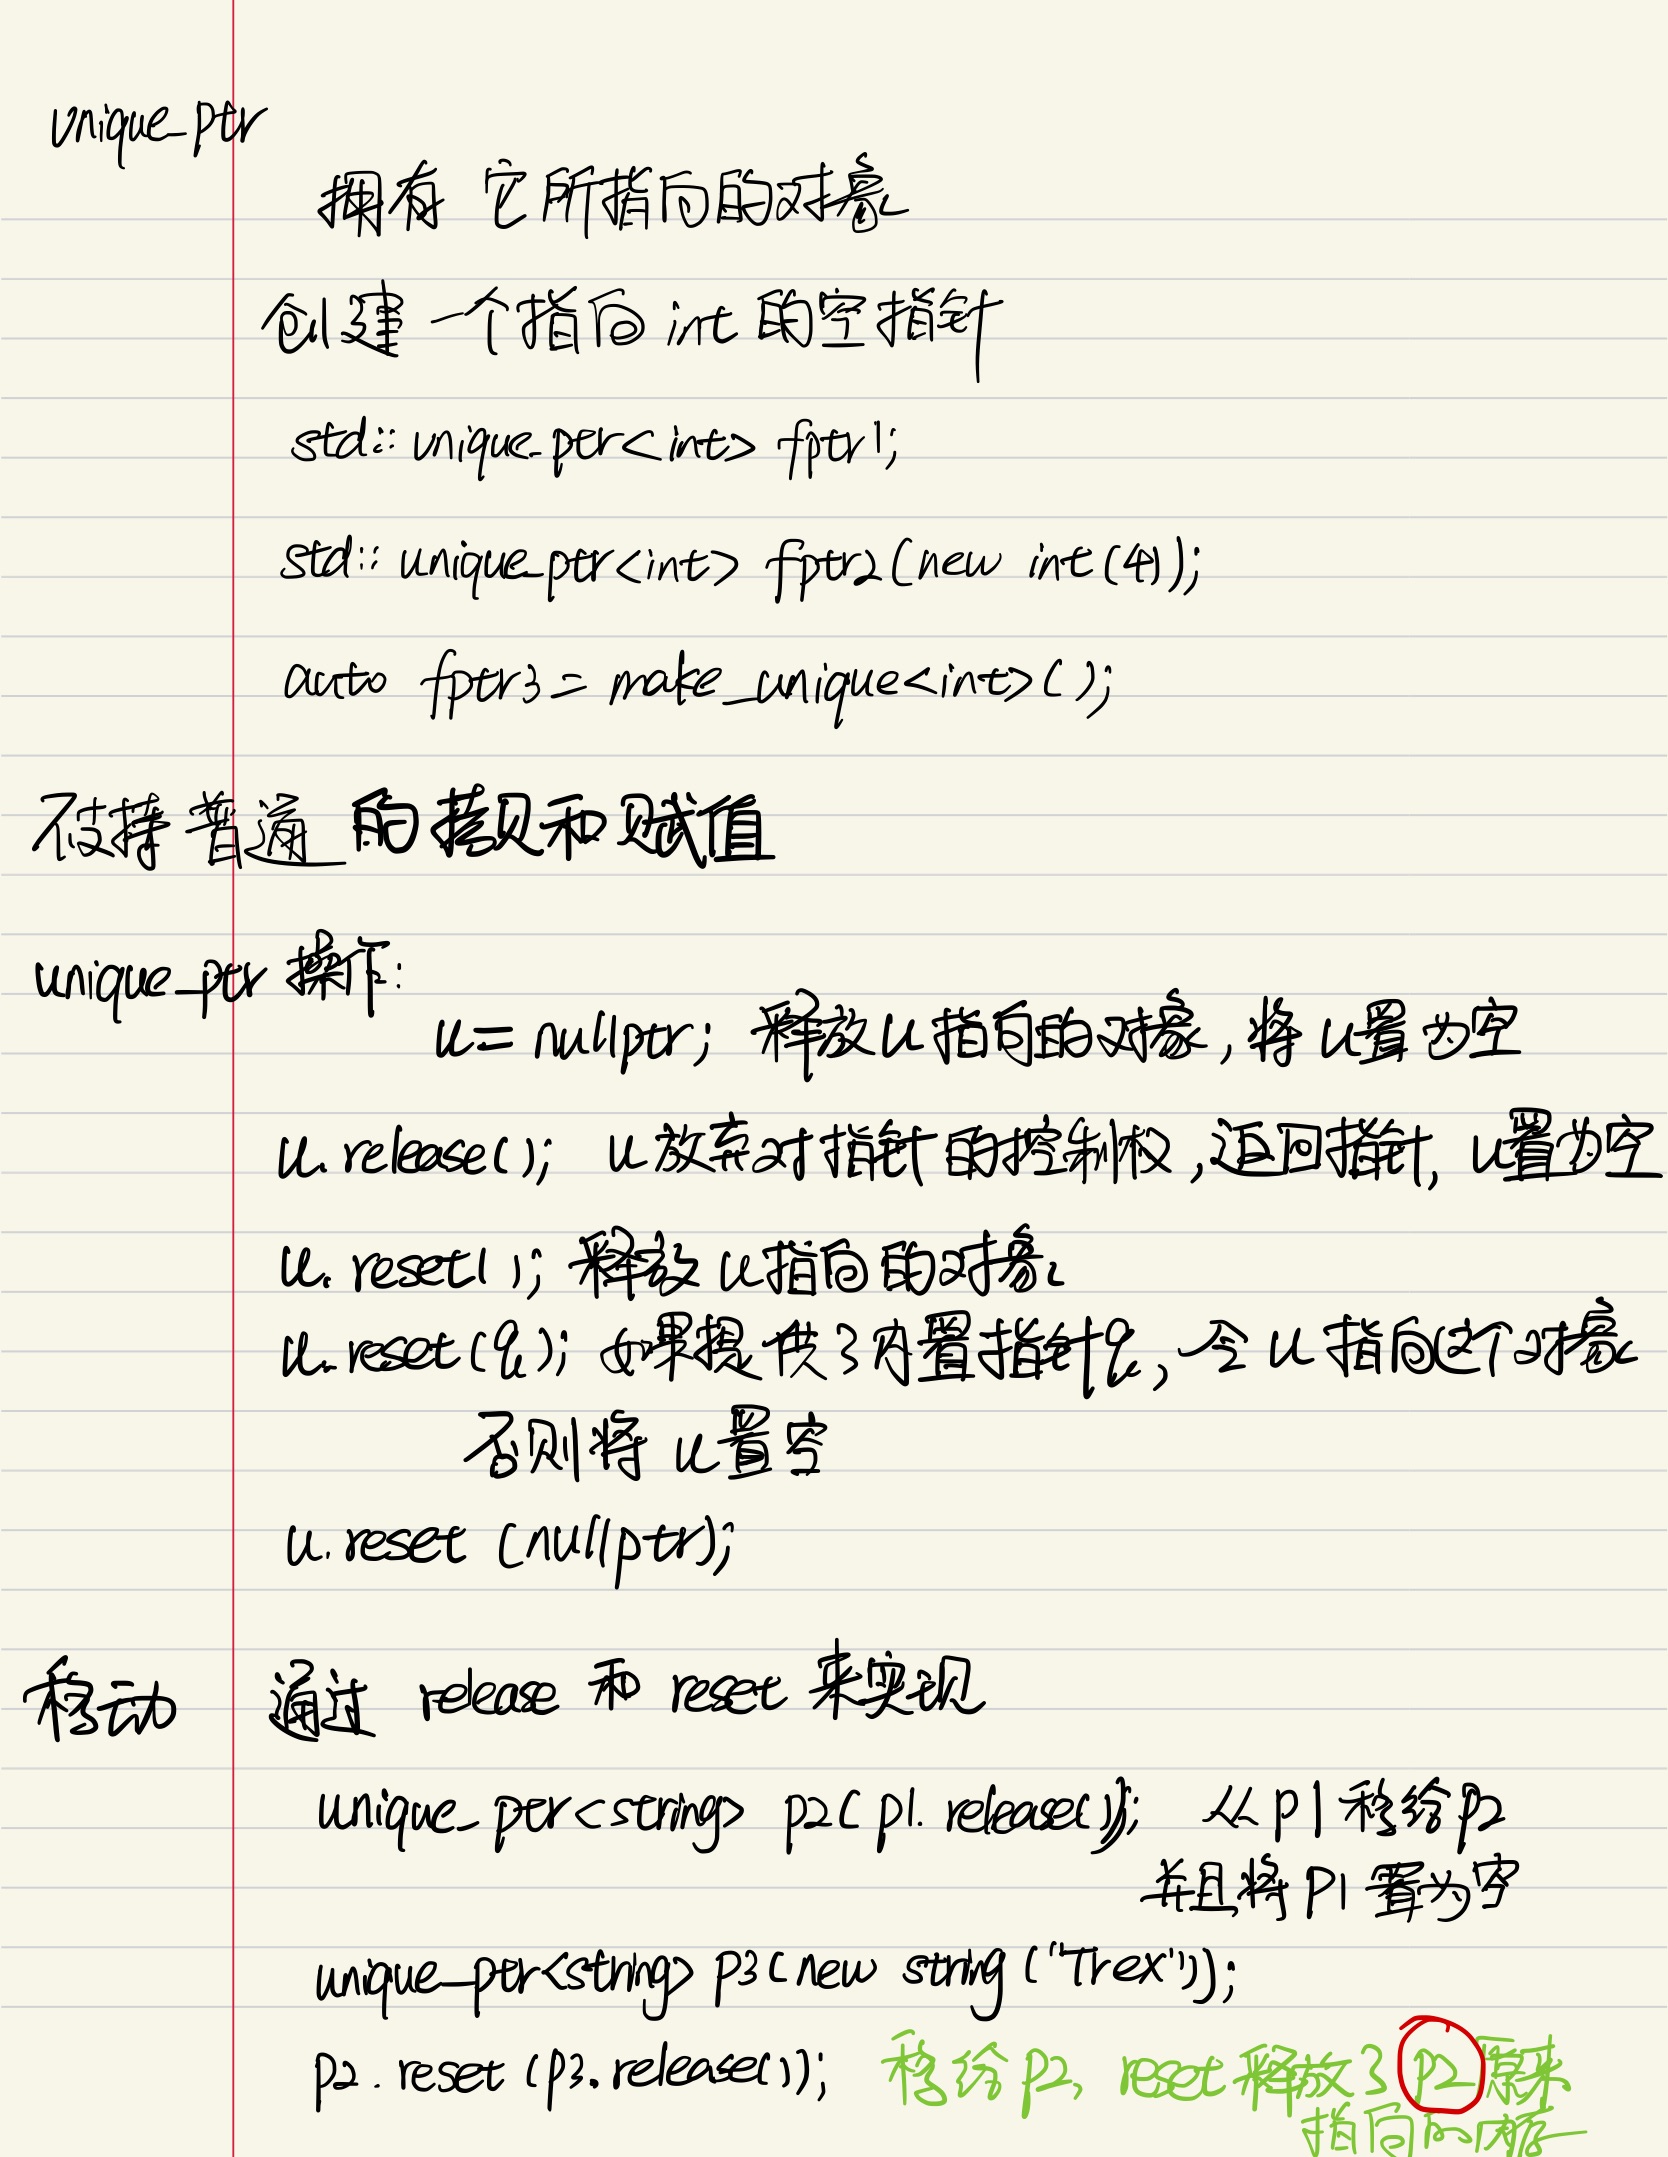 unique_ptr
拥有 它所指向的对象
创建一个指向 int 的空指针
std:: unique_ptr<int> fptr1;
std:: unique_ptr<int> fptr2(new int(4));
auto fptr3 = make_unique<int>();
不支持普通 的拷贝和赋值
unique_ptr 操作:
u = nullptr; 释放u指向的对象,将u置为空
u.release(); u放弃对指针的控制权,返回指针,u置为空
u.reset(); 释放u指向的对象
u.reset(q); 如果提供了内置指针q,令u指向这个对象
否则将u置空
u.reset (nullptr);
移动 通过 release 和 reset 来实现
unique_ptr<string> p2(p1.release()); 从p1移给p2
并且将p1置为空
unique_ptr<string> p3(new string ("Trex"));
p2.reset (p3.release()); 移给p2, reset释放了p2原来
指向的内存